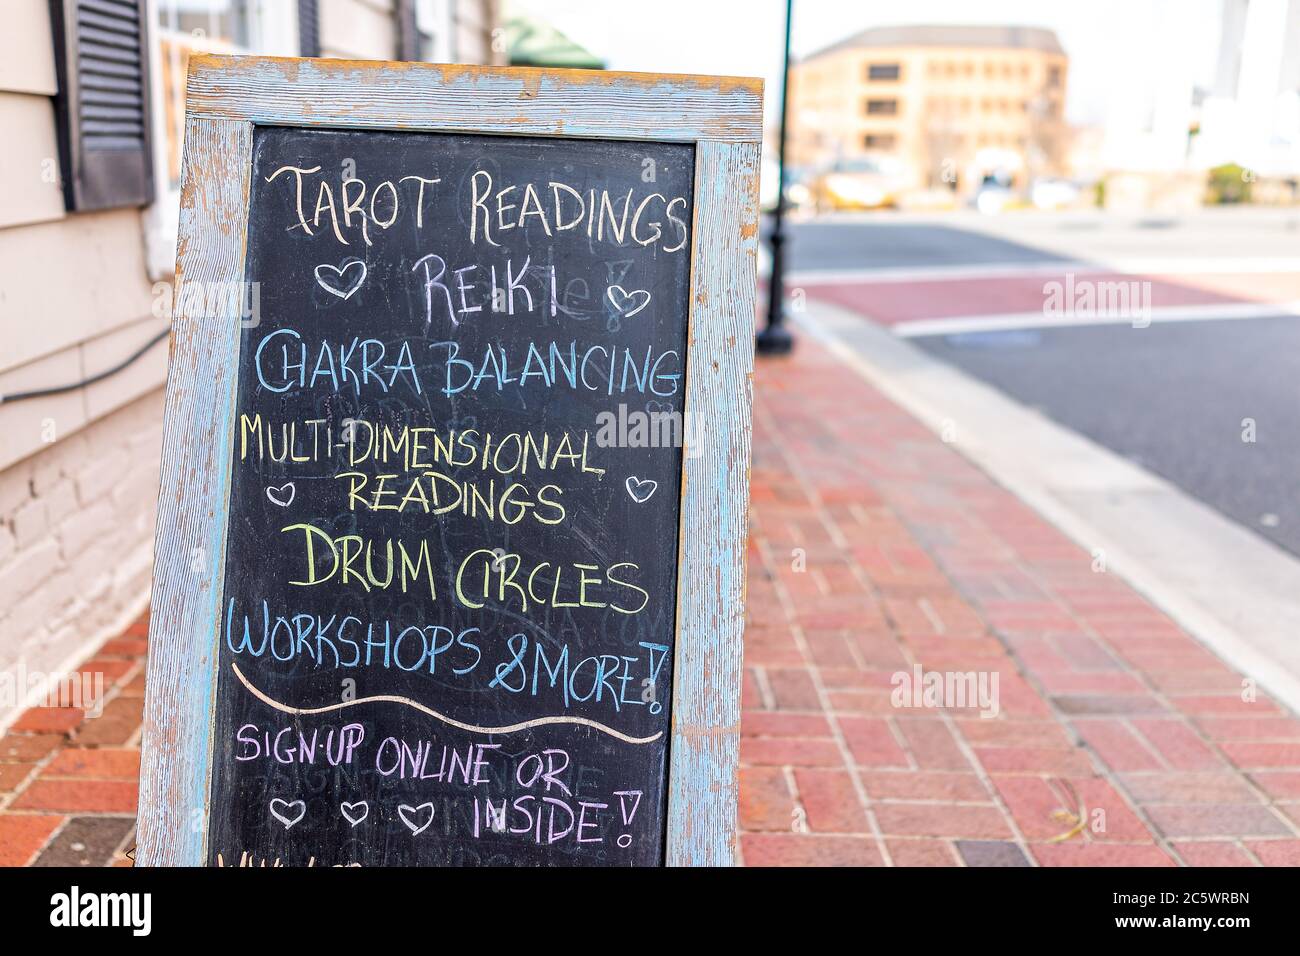 TAROT READINGS
REIKI
CHAKRA BALANCING
MULTI-DIMENSIONAL
READINGS
DRUM CIRCLES
WORKSHOPS & MORE!
SIGN-UP ONLINE OR
INSIDE!
alamy
Image ID: 2C5WRBN
www.alamy.com